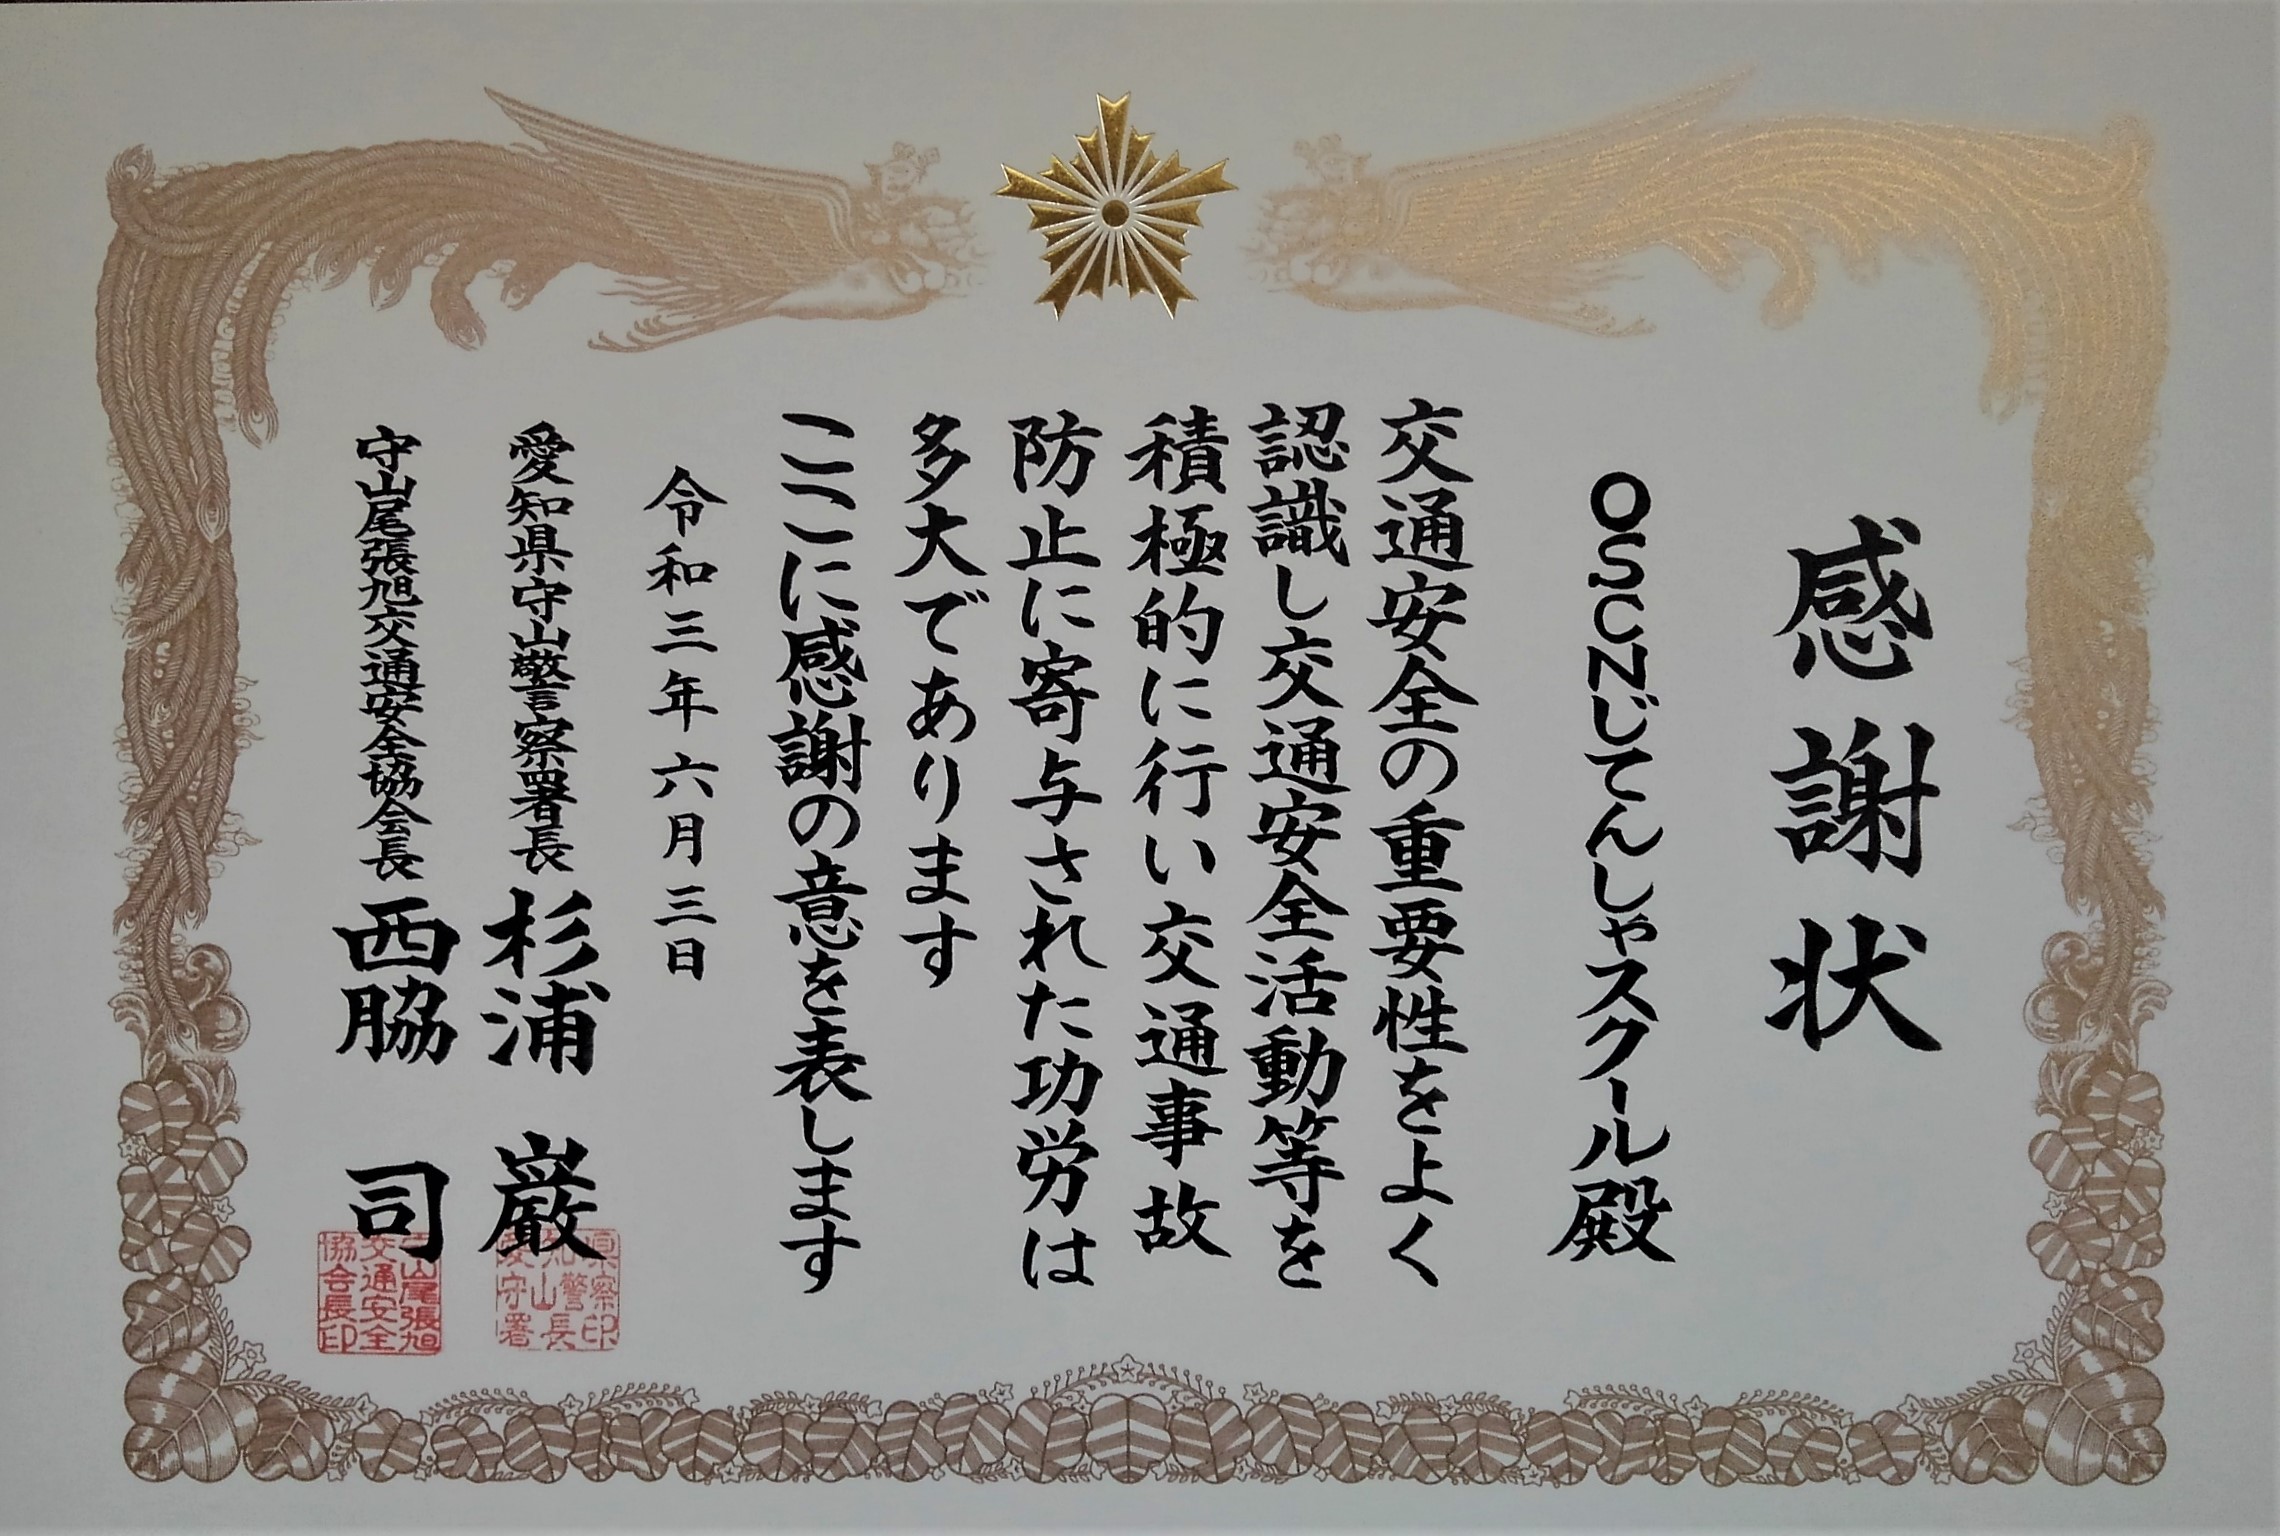 感謝状
OSCNじてんしゃスクール殿
交通安全の重要性をよく
認識し交通安全活動等を
積極的に行い交通事故
防止に寄与された功労は
多大であります
ここに感謝の意を表します
令和三年六月三日
愛知県守山警察署長 杉浦 巌
守山尾張旭交通安全協会長 西脇 司
愛知県守山警察署長印
守山尾張旭交通安全協会長印